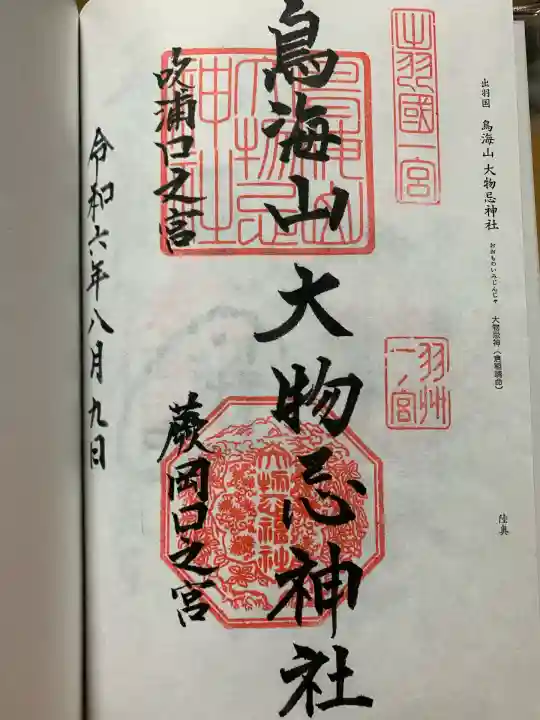 出羽国 鳥海山 大物忌神社 おおものいみじんじゃ 大物忌神（倉稲魂命） 陸奥
出羽國一宮
羽州一ノ宮
鳥海山大物忌神社
吹浦口之宮
蕨岡口之宮
令和六年八月九日